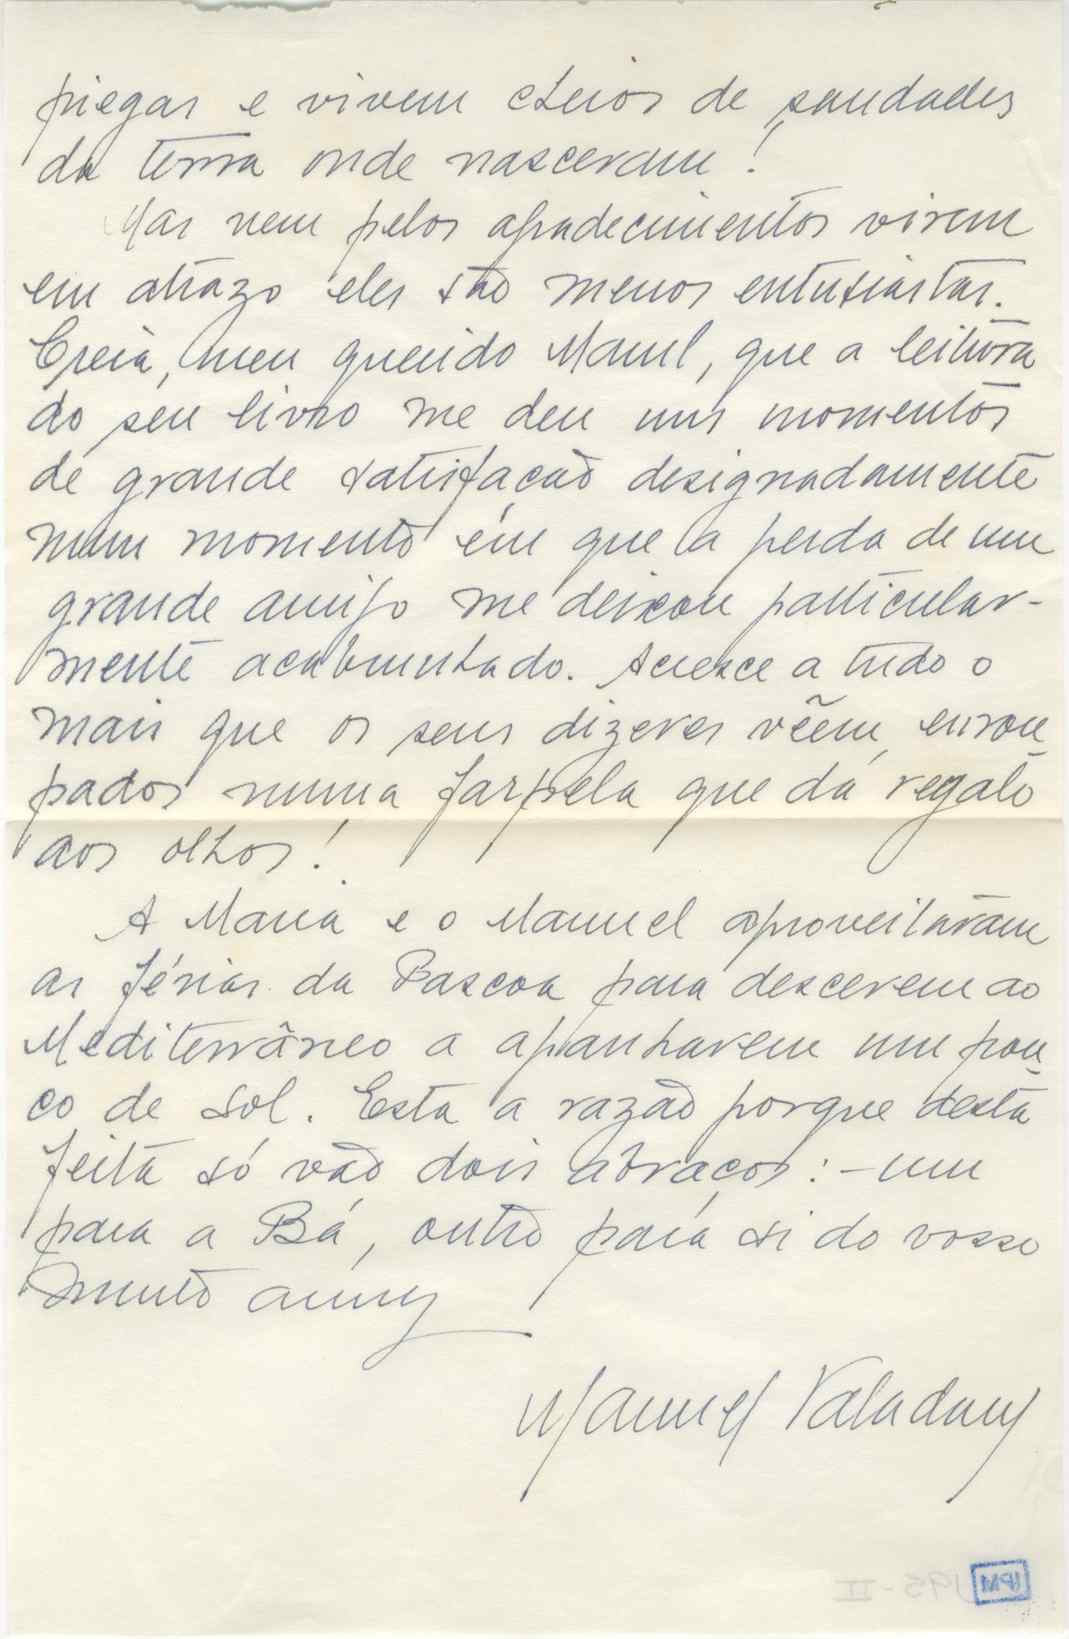 piegas e vivem cheios de saudades
da terra onde nasceram!
Mas nem pelos agradecimentos virem
em atrazo eles são menos entusiastas.
Creia, meu querido Manuel, que a leitura
do seu livro me deu uns momentos
de grande satisfação designadamente
num momento em que a perda de um
grande amigo me deixou particular-
mente acabrunhado. Acresce a tudo o
mais que os seus dizeres vêem enrou
pados numa farpela que dá regalo
aos olhos!
A Maria e o Manuel aproveitaram
as férias da Pascoa para descerem ao
Mediterrâneo a apanharem um pou
co de sol. Esta a razão porque desta
feita só vão dois abraços: - um
para a Bá, outro para si do vosso
muito amigo
Manuel Valadares
IPM
195-II